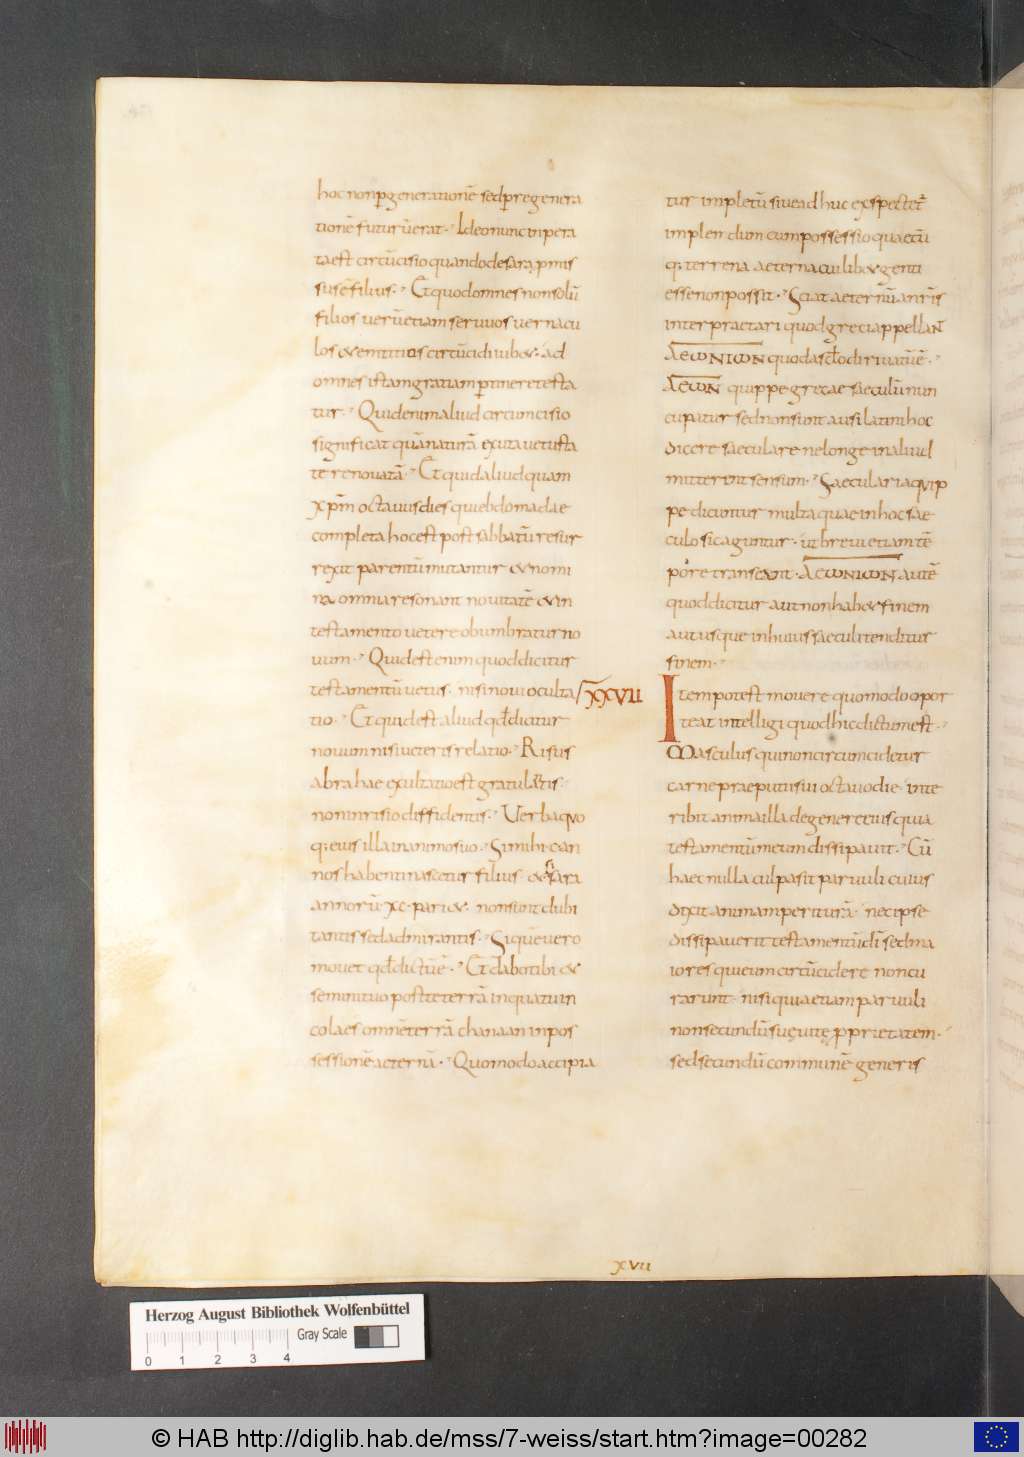 hoc non ꝑ generationē sed ꝑ regenera
tionē futurū erat. Ideo nunc inpera
ta est circūcisio quando de sara ꝓmis
sus ē filius. Et quod omnes non solū
filios uerū etiam seruuos uernacu
los & emtitios circūcidi iub&. ad
omnes istam gratiam ꝑtinere testa
tur. Quid enim aliud circumcisio
significat quā naturā exuta uetusta
te renouatā. Et quid aliud quam
xpm̄ octauus dies qui ebdomadae
completa hoc est post sabbatū resur
rexit parentū mutantur & nomi
na omnia resonant nouitatē & in
testamento uetere obumbratur no
uum. Quid est enim quod dicitur
testamentū uetus. nisi noui occulta
tio. Et quid est aliud qd̄ dicitur
nouum nisi ueteris relatio. Risus
abrahae exultatio est gratulantis.
non inrisio diffidentis. Uerba quo
q: eius illa in animo suo. Si mihi cen
nos habenti nascetur filius. & si sara
annorū xc. pari&. non sunt dubi
tantis sed admirantis. Si quē uero
mouet qd̄ dictū ē. Et dabo tibi &
semini tuo post te terrā in qua tu in
colaes omnē terrā chanaan in pos
sessionē aeternā. Quomodo accipia
tur impletū siue adhuc exspectet̄
implendum cum possessio quaecū
q: terrena aeterna cuilib& genti
esse non possit. Sciat aeternū a nr̄is
interpraetari quod greci appellan̄
ΑΕѠΝΙѠΝ quod a sc̄lo diriuatū ē.
ΑΕѠΝ quippe grecae saeculū nun
cupatur sed non sunt ausi latini hoc
dicere saeculare ne longe in aliud
mitterent sensum. Saecularia quip
pe dicuntur multa quae in hoc sae
culo sic aguntur. ut breui etiam tē
pore transeant. ΑΕѠΝΙѠΝ autē
quod dicitur aut non hab& finem
aut usque in huius saeculi tenditur
finem.
XXVII Item potest mouere quomodo opor
teat intelligi quod hic dictionē st.
Masculus qui non circumcidetur
carne praeputii sui octauo die. inte
ribit anima illa de genere eius quia
testamentū meum dissipauit. Cū
haec nulla culpa sit paruuli cuius
dixit animam perituram. nec ipse
dissipauerit testamentū di̅ sed ma
iores qui eum circūcidere non cu
rarunt. nisi quia etiam paruuli
non secundū suę uitę ꝓprietatem.
sed secundū commune generis
XVII
Herzog August Bibliothek Wolfenbüttel
Gray Scale
0 1 2 3 4
© HAB http://diglib.hab.de/mss/7-weiss/start.htm?image=00282